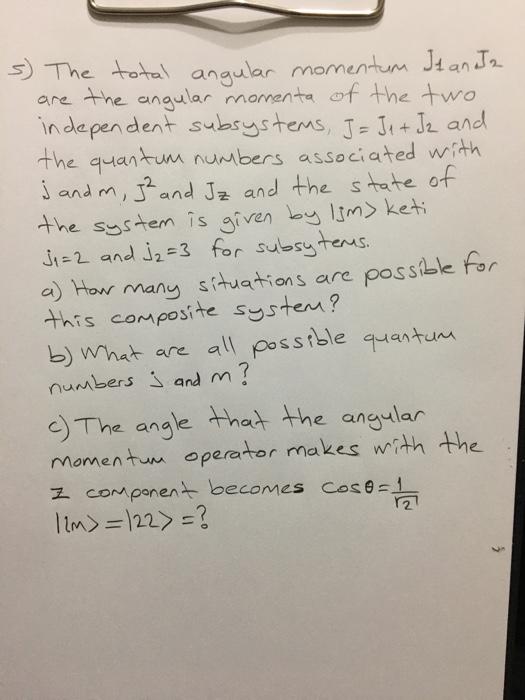 5) The total angular momentum J1 an J2
are the angular momenta of the two
independent subsystems, J = J1 + J2 and
the quantum numbers associated with
j and m, J² and Jz and the state of
the system is given by |jm> keti
j1=2 and j2=3 for subsytems.
a) How many situations are possible for
this composite system?
b) What are all possible quantum
numbers j and m?
c) The angle that the angular
momentum operator makes with the
z component becomes cosθ = 1/√2
|jm> = |22> = ?